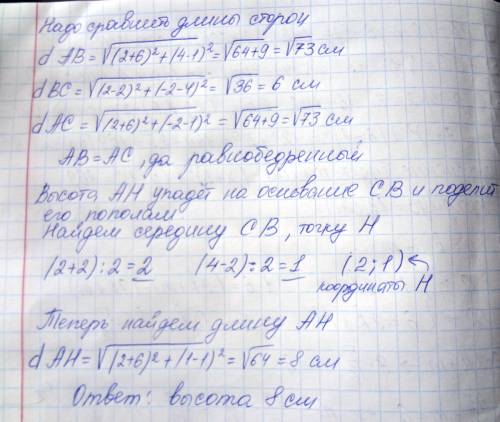 Надо сравнить длины сторон
d AB = √((2+6)²+(4-1)²) = √(64+9) = √73 см
d BC = √((2-2)²+(-2-4)²) = √36 = 6 см
d AC = √((2+6)²+(-2-1)²) = √(64+9) = √73 см
AB = AC, да равнобедренный
Высота AH упадёт на основание CB и поделит
его пополам
Найдем середину CB, точку H
(2+2):2=2 (4-2):2=1 (2;1) ←
координаты H
Теперь найдем длину AH
d AH = √((2+6)²+(1-1)²) = √64 = 8 см
Ответ: высота 8 см